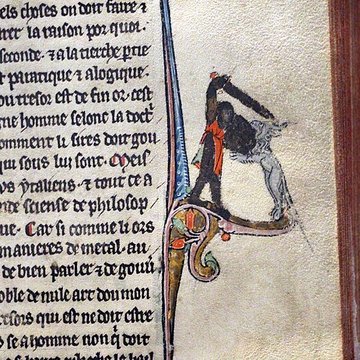 els choses on doit faire ⁊
ret la raison por quoi
seconde. ⁊ a la tierche ptie
st pratique ⁊ alogique.
ou tresor est de fin or. cest
une homme selonc la doct
omment li sires doit gou
qui sous lui sont. Meis
us ytaliens. ⁊ tout ce a
de sciense de philosop
ue. Car si comme li ors
manieres de metal. au
de bien parler ⁊ de gouu
oble de nule art don mon
resors qui est ne doit estre
se a homme non q̃ doit